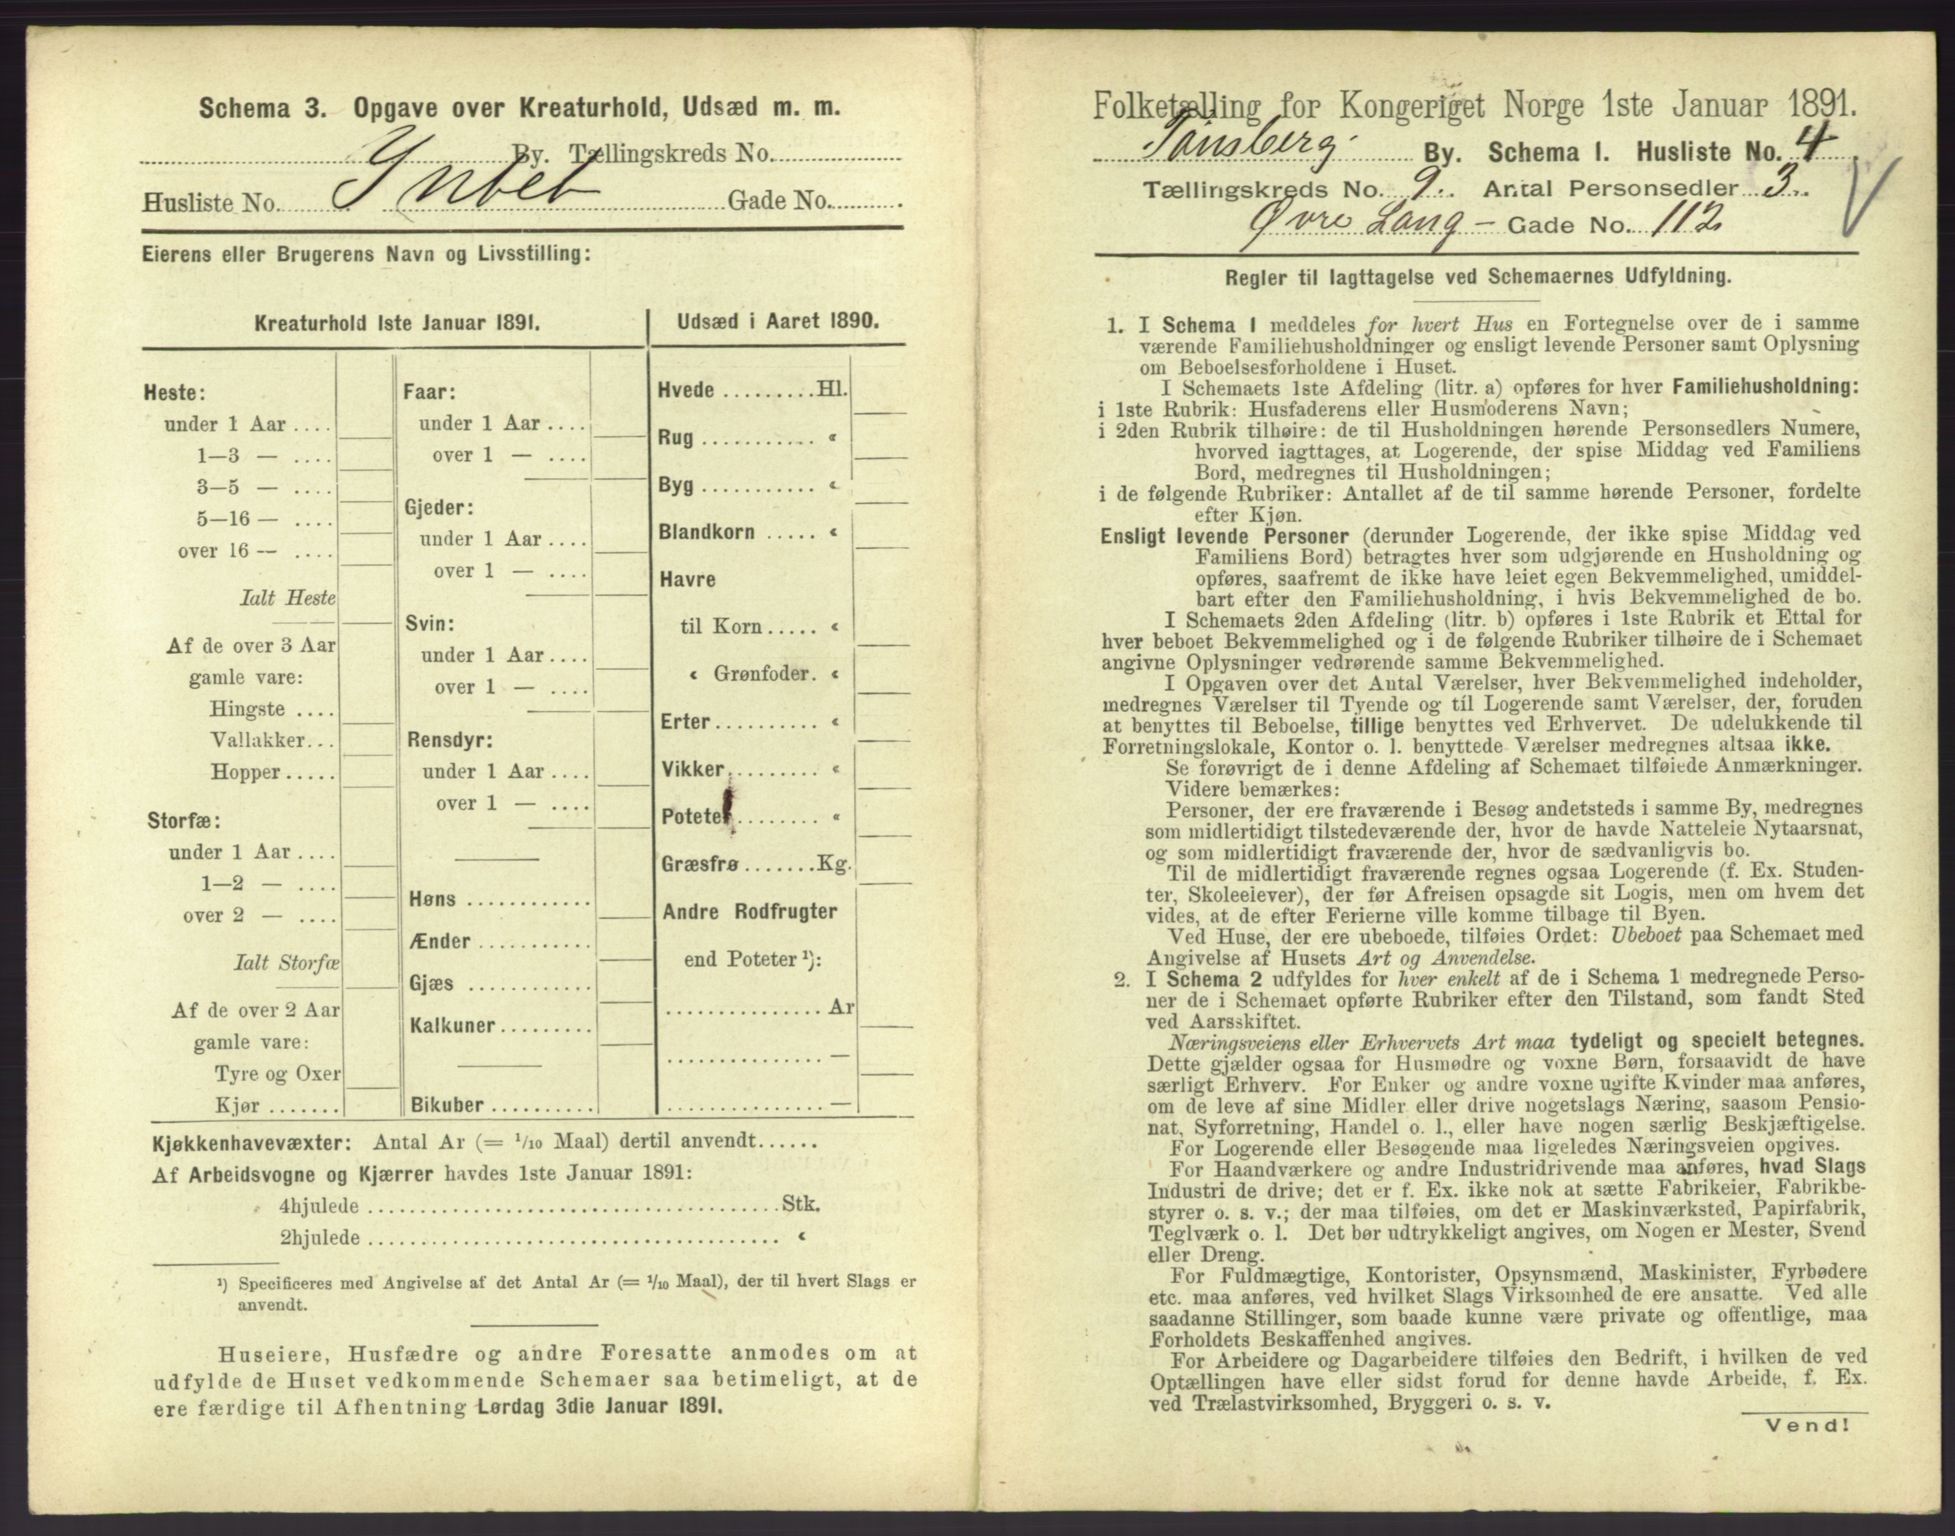 Schema 3. Opgave over Kreaturhold, Udsæd m. m.
By. Tællingskreds No.
Husliste No. Intet Gade No.
Eierens eller Brugerens Navn og Livsstilling:
Kreaturhold 1ste Januar 1891.
Heste:
under 1 Aar ....
1—3 — ....
3—5 — ....
5—16 — ....
over 16 — ....
Ialt Heste
Af de over 3 Aar
gamle vare:
Hingste ....
Vallakker...
Hopper.....
Storfæ:
under 1 Aar ....
1—2 — ....
over 2 — ....
Ialt Storfæ
Af de over 2 Aar
gamle vare:
Tyre og Oxer
Kjør .......
Faar:
under 1 Aar ....
over 1 — ....
Gjeder:
under 1 Aar ....
over 1 — ....
Svin:
under 1 Aar ....
over 1 — ....
Rensdyr:
under 1 Aar ....
over 1 — ....
Høns ............
Ænder ...........
Gjæs ............
Kalkuner .........
Bikuber ..........
Udsæd i Aaret 1890.
Hvede .........Hl.
Rug ........... «
Byg ........... «
Blandkorn ..... «
Havre
til Korn..... «
« Grønfoder. «
Erter.......... «
Vikker......... «
Poteter........ «
Græsfrø .......Kg.
Andre Rodfrugter
end Poteter ¹):
............... Ar
............... —
............... —
Kjøkkenhavevæxter: Antal Ar (= 1/10 Maal) dertil anvendt......
Af Arbeidsvogne og Kjærrer havdes 1ste Januar 1891:
4hjulede ....................................... Stk.
2hjulede ....................................... «
¹) Specificeres med Angivelse af det Antal Ar (= 1/10 Maal), der til hvert Slags er
anvendt.
Huseiere, Husfædre og andre Foresatte anmodes om at
udfylde de Huset vedkommende Schemaer saa betimeligt, at de
ere færdige til Afhentning Lørdag 3die Januar 1891.
Folketælling for Kongeriget Norge 1ste Januar 1891.
Tønsberg By. Schema I. Husliste No. 4
Tællingskreds No. 9. Antal Personsedler 3.
Øvre Lang - Gade No. 112
Regler til Iagttagelse ved Schemaernes Udfyldning.
1. I Schema 1 meddeles for hvert Hus en Fortegnelse over de i samme
værende Familiehusholdninger og ensligt levende Personer samt Oplysning
om Beboelsesforholdene i Huset.
I Schemaets 1ste Afdeling (litr. a) opføres for hver Familiehusholdning:
i 1ste Rubrik: Husfaderens eller Husmoderens Navn;
i 2den Rubrik tilhøire: de til Husholdningen hørende Personsedlers Numere,
hvorved iagttages, at Logerende, der spise Middag ved Familiens
Bord, medregnes til Husholdningen;
i de følgende Rubriker: Antallet af de til samme hørende Personer, fordelte
efter Kjøn.
Ensligt levende Personer (derunder Logerende, der ikke spise Middag ved
Familiens Bord) betragtes hver som udgjørende en Husholdning og
opføres, saafremt de ikke have leiet egen Bekvemmelighed, umiddel-
bart efter den Familiehusholdning, i hvis Bekvemmelighed de bo.
I Schemaets 2den Afdeling (litr. b) opføres i 1ste Rubrik et Ettal for
hver beboet Bekvemmelighed og i de følgende Rubriker tilhøire de i Schemaet
angivne Oplysninger vedrørende samme Bekvemmelighed.
I Opgaven over det Antal Værelser, hver Bekvemmelighed indeholder,
medregnes Værelser til Tyende og til Logerende samt Værelser, der, foruden
at benyttes til Beboelse, tillige benyttes ved Erhvervet. De udelukkende til
Forretningslokale, Kontor o. l. benyttede Værelser medregnes altsaa ikke.
Se forøvrigt de i denne Afdeling af Schemaet tilføiede Anmærkninger.
Videre bemærkes:
Personer, der ere fraværende i Besøg andetsteds i samme By, medregnes
som midlertidigt tilstedeværende der, hvor de havde Natteleie Nytaarsnat,
og som midlertidigt fraværende der, hvor de sædvanligvis bo.
Til de midlertidigt fraværende regnes ogsaa Logerende (f. Ex. Studen-
ter, Skoleelever), der før Afreisen opsagde sit Logis, men om hvem det
vides, at de efter Ferierne ville komme tilbage til Byen.
Ved Huse, der ere ubeboede, tilføies Ordet: Ubeboet paa Schemaet med
Angivelse af Husets Art og Anvendelse.
2. I Schema 2 udfyldes for hver enkelt af de i Schema 1 medregnede Perso-
ner de i Schemaet opførte Rubriker efter den Tilstand, som fandt Sted
ved Aarsskiftet.
Næringsveiens eller Erhvervets Art maa tydeligt og specielt betegnes.
Dette gjælder ogsaa for Husmødre og voxne Børn, forsaavidt de have
særligt Erhverv. For Enker og andre voxne ugifte Kvinder maa anføres,
om de leve af sine Midler eller drive nogetslags Næring, saasom Pensio-
nat, Syforretning, Handel o. l., eller have nogen særlig Beskjæftigelse.
For Logerende eller Besøgende maa ligeledes Næringsveien opgives.
For Haandværkere og andre Industridrivende maa anføres, hvad Slags
Industri de drive; det er f. Ex. ikke nok at sætte Fabrikeier, Fabrikbe-
styrer o. s. v.; der maa tilføies, om det er Maskinværksted, Papirfabrik,
Teglværk o. l. Det bør udtrykkeligt angives, om Nogen er Mester, Svend
eller Dreng.
For Fuldmægtige, Kontorister, Opsynsmænd, Maskinister, Fyrbødere
etc. maa anføres, ved hvilket Slags Virksomhed de ere ansatte. Ved alle
saadanne Stillinger, som baade kunne være private og offentlige, maa
Forholdets Beskaffenhed angives.
For Arbeidere og Dagarbeidere tilføies den Bedrift, i hvilken de ved
Optællingen have eller sidst forud for denne havde Arbeide, f. Ex.
ved Trælastvirksomhed, Bryggeri o. s. v.
Vend!